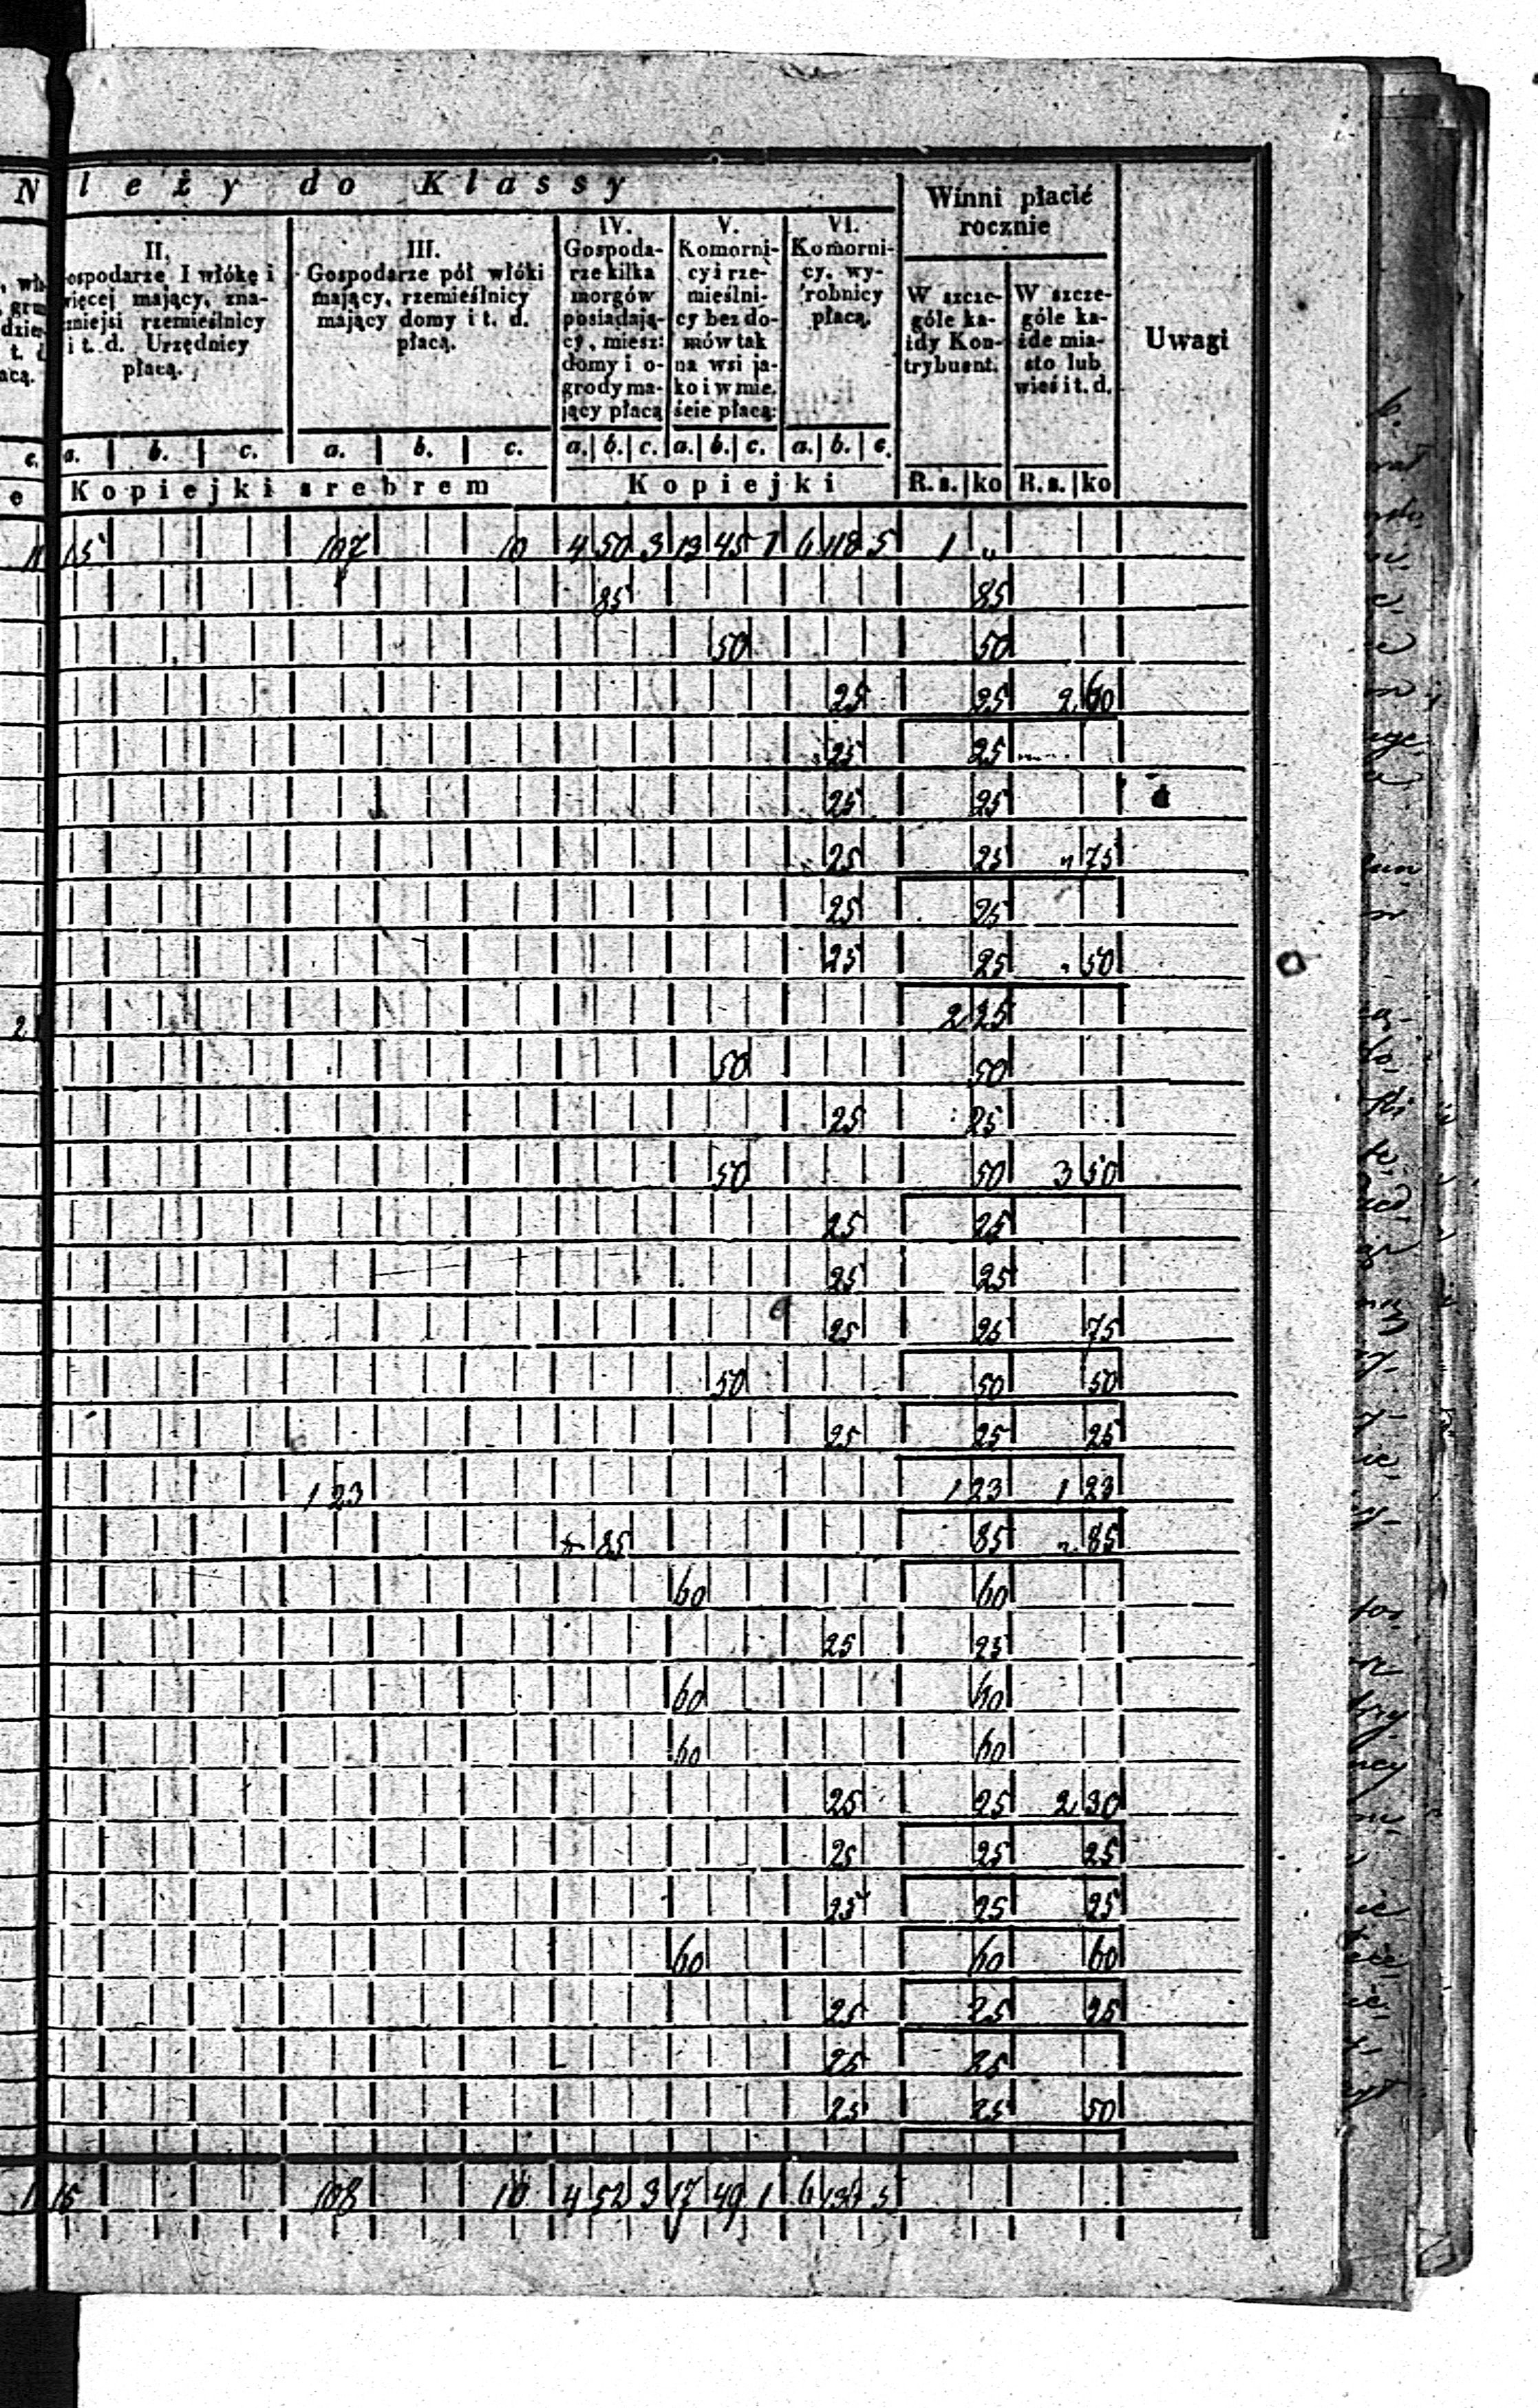 N leży do Klassy
Winni płacić rocznie
Uwagi
II. ospodarze I włókę i
więcej mający, zna-
mniejsi rzemieślnicy
i t. d. Urzędnicy
płacą.
III. Gospodarze pół włóki
mający, rzemieślnicy
mający domy i t. d.
płacą.
IV. Gospoda-
rze kilka
morgów
posiadają-
cy, miesz:
domy i o-
grody ma-
jący płacą
V. Komorni-
cy i rze-
mieślni-
cy bez do-
mów tak
na wsi ja-
ko i w mie.
ście płacą:
VI. Komorni-
cy, wy-
robnicy
płacą.
W szcze-
góle ka-
żdy Kon-
trybuent.
W szcze-
góle ka-
żde mia-
sto lub
wieś i t. d.
c. a. b. c. a. b. c. a. b. c. a. b. c. a. b. c.
e Kopiejki srebrem Kopiejki R.s. ko R.s. ko
11 15 107 10 4 50 3 13 45 1 6 118 5 1 "
85 85
50 50
25 25 2 60
25 25
25 25
25 25 " 75
25 25
25 25 " 50
2 2 25
50 50
25 25
50 50 3 50
25 25
25 25
25 25 75
50 50 50
25 25 25
1 23 1 23 1 23
85 85 " 85
60 60
25 25
60 60
60 60
25 25 2 30
25 25 25
25 25 25
60 60 60
25 25 25
25 25
25 25 50
15 108 10 4 52 3 17 49 1 6 134 5